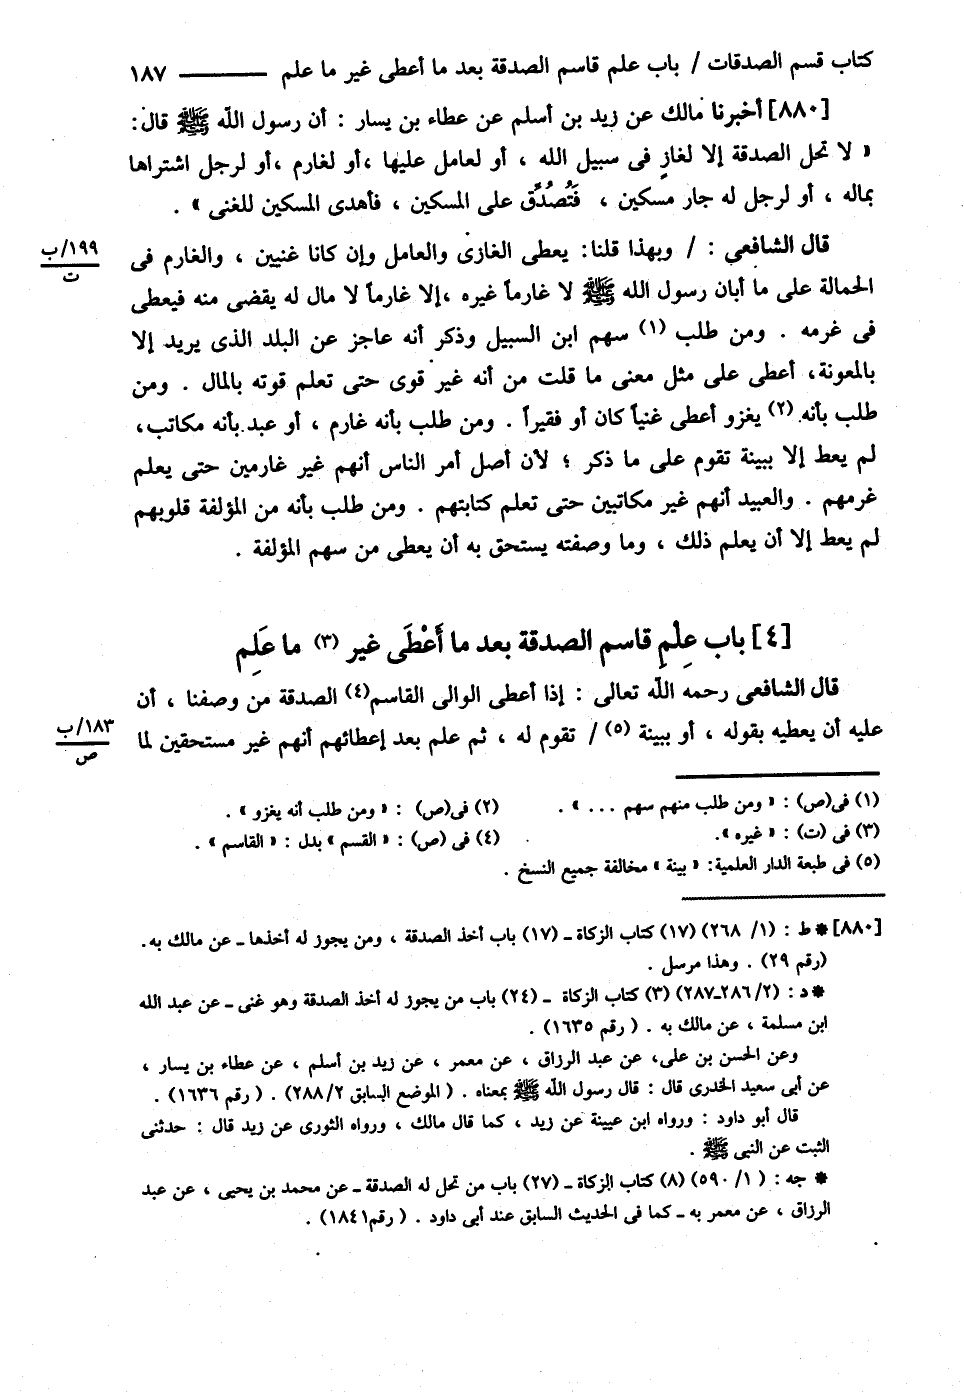 كتاب قسم الصدقات / باب علم قاسم الصدقة بعد ما أعطى غير ما علم ـــــــ ١٨٧
[٨٨٠] أخبرنا مالك عن زيد بن أسلم عن عطاء بن يسار : أن رسول الله ﷺ قال:
« لا تحل الصدقة إلا لغازٍ فى سبيل الله ، أو لعامل عليها ،أو لغارم ،أو لرجل اشتراها
بماله ، أو لرجل له جار مسكين ، فَتُصُدِّق على المسكين ، فأهدى المسكين للغنى » .
قال الشافعي : / وبهذا قلنا: يعطى الغازى والعامل وإن كانا غنيين ، والغارم فى
١٩٩/ب
ت
الحمالة على ما أبان رسول الله ﷺ لا غارماً غيره ،إلا غارماً لا مال له يقضى منه فيعطى
فى غرمه . ومن طلب (١) سهم ابن السبيل وذكر أنه عاجز عن البلد الذى يريد إلا
بالمعونة، أعطى على مثل معنى ما قلت من أنه غير قوى حتى تعلم قوته بالمال . ومن
طلب بأنه (٢) يغزو أعطى غنياً كان أو فقيراً . ومن طلب بأنه غارم ، أو عبد بأنه مكاتب،
لم يعط إلا ببينة تقوم على ما ذكر ؛ لأن أصل أمر الناس أنهم غير غارمين حتى يعلم
غرمهم . والعبيد أنهم غير مكاتبين حتى تعلم كتابتهم . ومن طلب بأنه من المؤلفة قلوبهم
لم يعط إلا أن يعلم ذلك ، وما وصفته يستحق به أن يعطى من سهم المؤلفة .
[٤] باب عِلْمِ قاسم الصدقة بعد ما أَعْطَى غير (٣) ما عَلِم
قال الشافعى رحمه الله تعالى : إذا أعطى الوالى القاسم(٤) الصدقة من وصفنا ، أن
عليه أن يعطيه بقوله ، أو ببينة (٥) / تقوم له ، ثم علم بعد إعطائهم أنهم غير مستحقين لما
١٨٣/ب
ص
(١) فى(ص) : « ومن طلب منهم سهم ... » .
(٢) فى(ص) : « ومن طلب أنه يغزو » .
(٣) فى (ت) : « غيره ».
(٤) فى (ص) : « القسم » بدل : « القاسم » .
(٥) فى طبعة الدار العلمية: « بينة » مخالفة جميع النسخ .
[٨٨٠] * ط : (١/ ٢٦٨) (١٧) كتاب الزكاة ـ (١٧) باب أخذ الصدقة ، ومن يجوز له أخذها ـ عن مالك به.
(رقم ٢٩) . وهذا مرسل .
* د : (٢/ ٢٨٦ـ٢٨٧) (٣) كتاب الزكاة ـ (٢٤) باب من يجوز له أخذ الصدقة وهو غنى ـ عن عبد الله
ابن مسلمة ، عن مالك به . ( رقم ١٦٣٥) .
وعن الحسن بن على، عن عبد الرزاق ، عن معمر ، عن زيد بن أسلم ، عن عطاء بن يسار ،
عن أبى سعيد الخدرى قال : قال رسول الله ﷺ بمعناه . ( الموضع السابق ٢/ ٢٨٨) . ( رقم ١٦٣٦) .
قال أبو داود : ورواه ابن عيينة عن زيد ، كما قال مالك ، ورواه الثورى عن زيد قال : حدثنى
الثبت عن النبى ﷺ .
* جه : ( ١/ ٥٩٠) (٨) كتاب الزكاة ـ (٢٧) باب من تحل له الصدقة ـ عن محمد بن يحيى ، عن عبد
الرزاق ، عن معمر به ـ كما فى الحديث السابق عند أبى داود . ( رقم١٨٤١) .